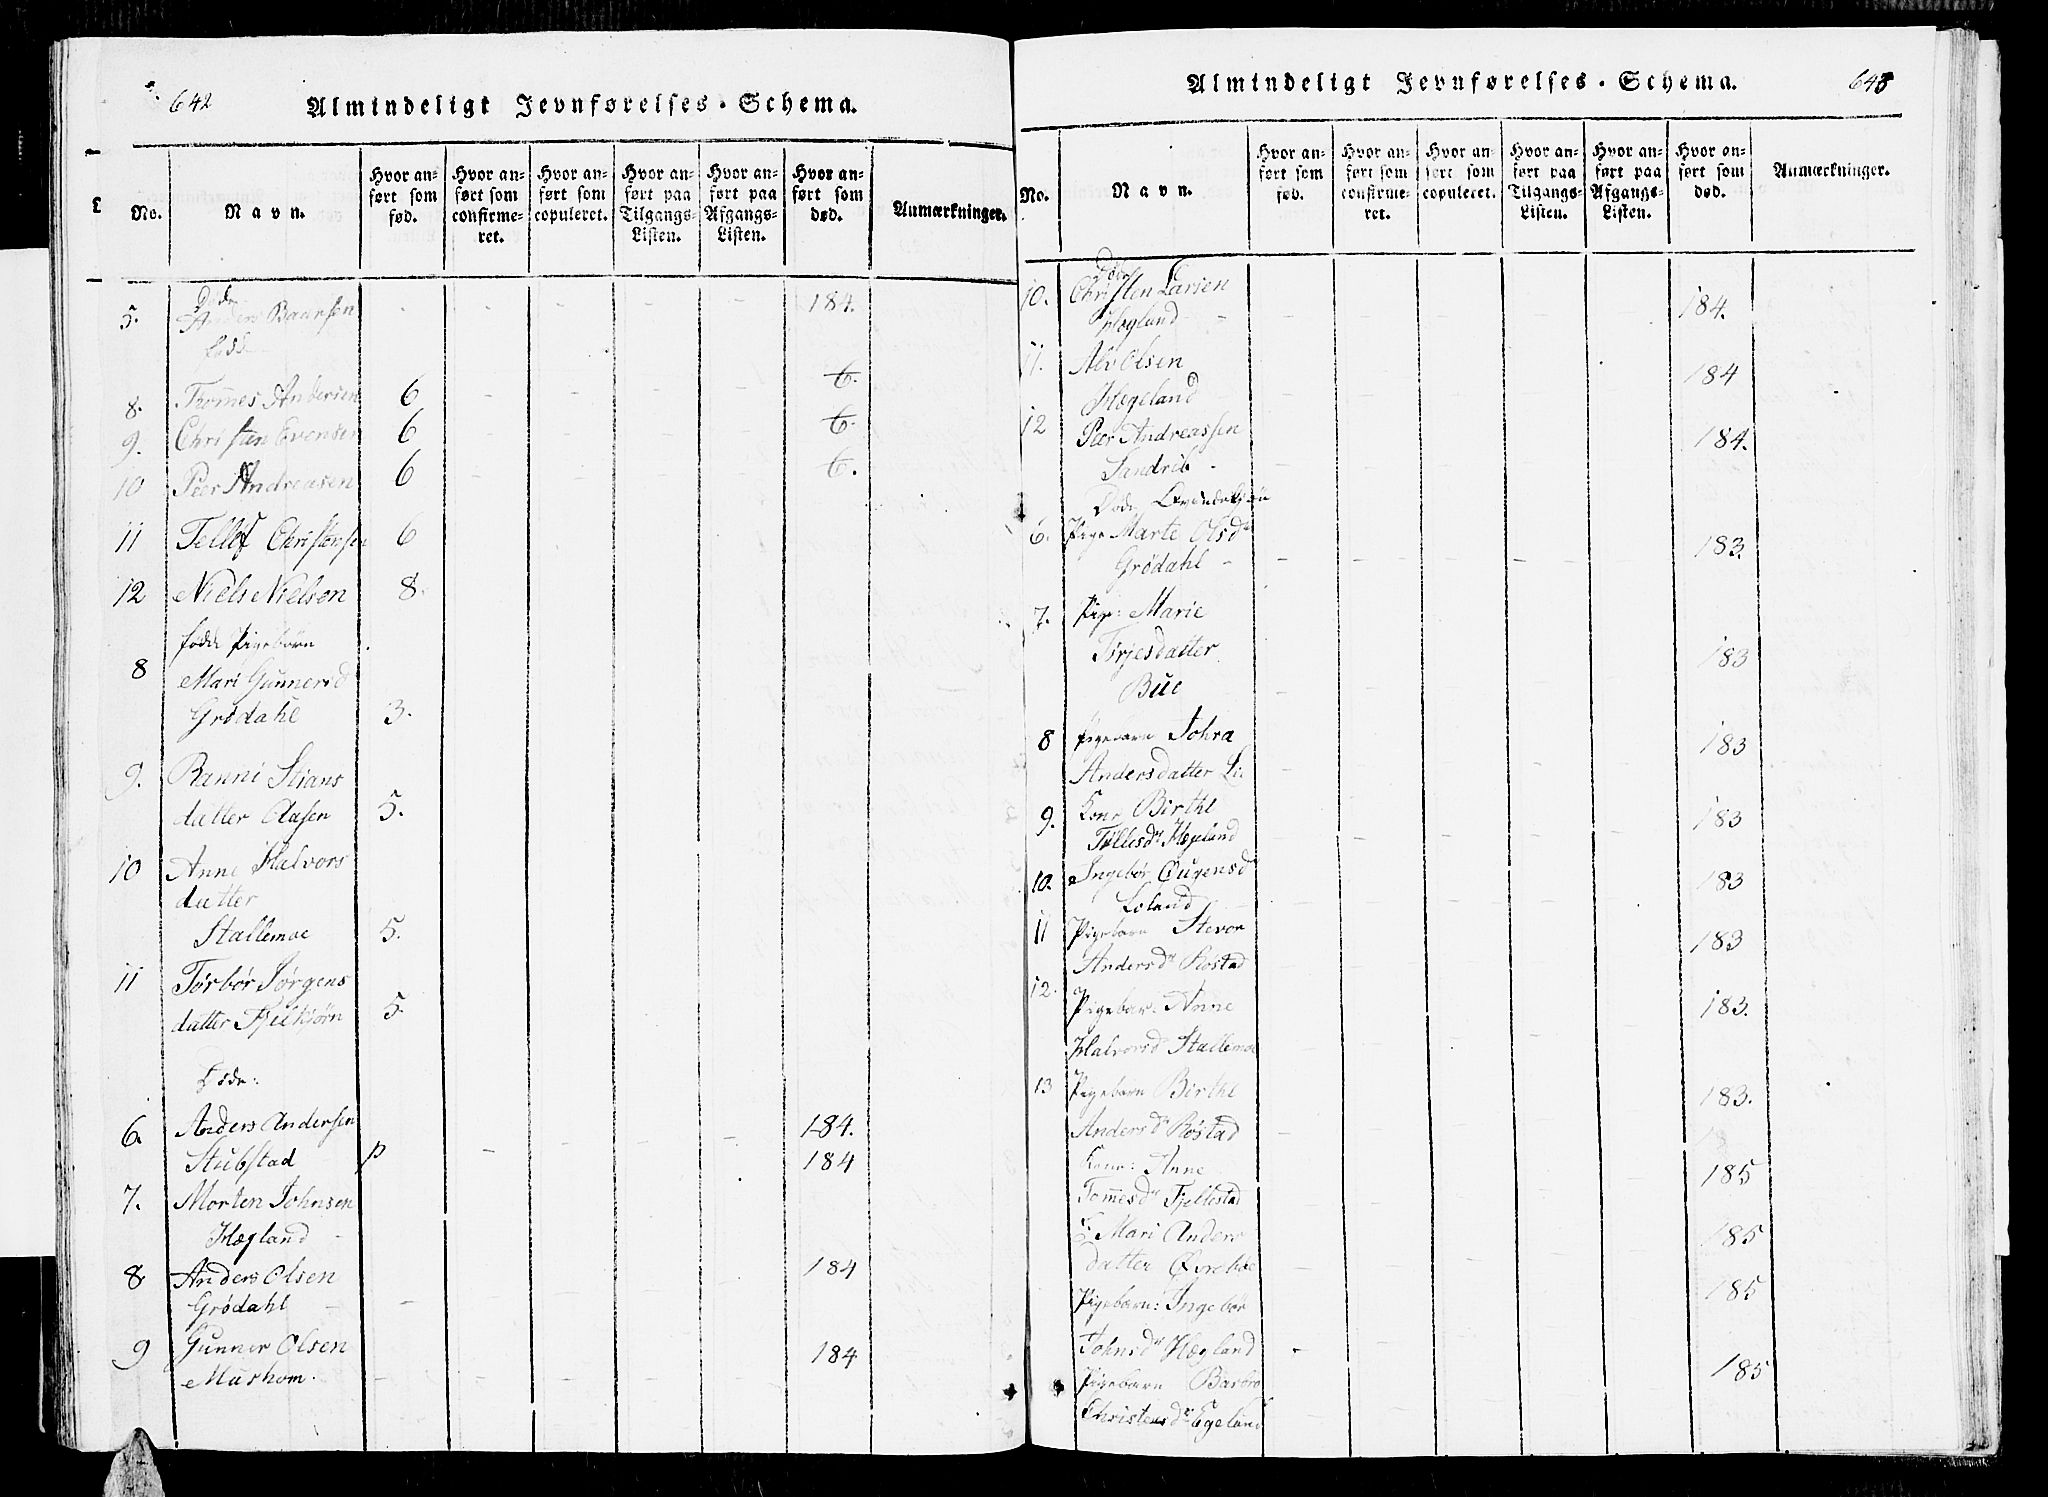 642
Almindeligt Jevnførelses-Schema.
No.
Navn.
Hvor anført som fød.
Hvor anført som confirmeret.
Hvor anført som copuleret.
Hvor anført paa Tilgangs-Listen.
Hvor anført paa Afgangs-Listen.
Hvor anført som død.
Anmærkninger.
Døde
5. Anders Baarsen 184.
8. Tommes Andersen 6 6.
9. Christen Evensen 6 6.
10 Peer Andreasen 6 6.
11 Tellef Christensen 6
12 Niels Nielsen 8.
fødde Pigebørn
8 Mari Gunnersd
Grødahl 3.
9. Ranni Stians
datter Aasen 5.
10 Anne Halvors
datter
Stallemoe 5.
11 Tørbør Jørgens
datter Fjelkjørn 5.
Døde:
6. Anders Andersen 184.
Stubstad 184
7. Morten Johnsen
Hægland
8 Anders Olsen 184
Grødahl
9 Gunner Olsen 184
Mushom.
643
Almindeligt Jevnførelses-Schema.
No.
Navn.
Hvor anført som fød.
Hvor anført som confirmeret.
Hvor anført som copuleret.
Hvor anført paa Tilgangs-Listen.
Hvor anført paa Afgangs-Listen.
Hvor anført som død.
Anmærkninger.
Døde
10. Christen Larsen
Hægland 184.
11. Alv Olsen 184
Hægeland
12 Peer Andreassen 184.
Sandrib
Døde Qvindekjøn
6. Pige Marte Olsdr
Grødahl 183.
7. Pige: Marie
Tørjesdatter 183
Bue
8 Pigebarn Tohra 183
Andersdatter Li
9. Kone Birthe 183
Tøllesdr Hægland
10. Ingebør Ougensd 183
Loland
11 Pigebarn Stevor 183
Andersdr Røstad
12. Pigebar: Anne 183.
Halvorsd Stallemoe
13 Pigebarn Birthe 183.
Andersdr Røstad
Kone: Anne 185
Tomesdr Fjellestad
Mari Anders 185
datter Øvrebøe
Pigebarn: Ingebør 185
Johnsdr Hægland
Pigebarn Barbro 185
Christensdr Egeland